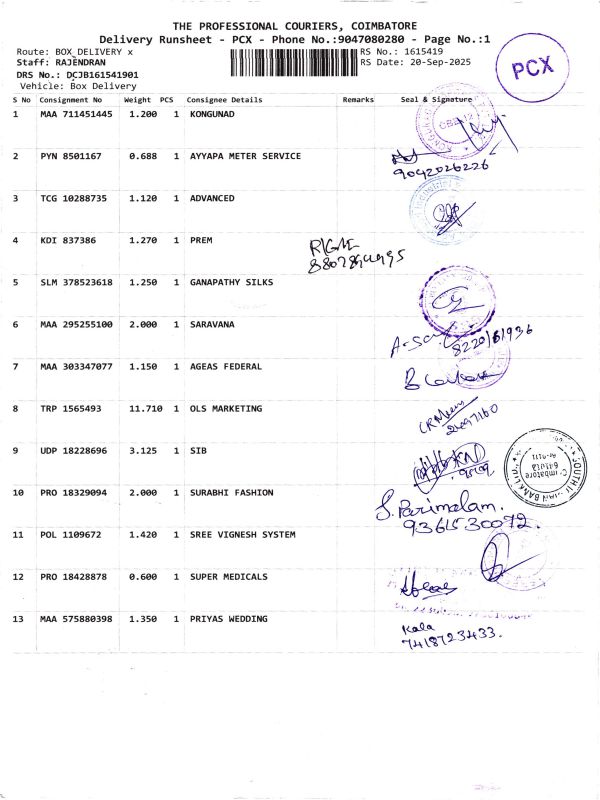 THE PROFESSIONAL COURIERS, COIMBATORE
Delivery Runsheet - PCX - Phone No.:9047080280 - Page No.:1
Route: BOX DELIVERY x
RS No.: 1615419
Staff: RAJENDRAN
RS Date: 20-Sep-2025
DRS No.: DCJB161541901
Vehicle: Box Delivery
PCX
S No Consignment No Weight PCS Consignee Details Remarks Seal & Signature
1 MAA 711451445 1.200 1 KONGUNAD
2 PYN 8501167 0.688 1 AYYAPA METER SERVICE
9042026226
3 TCG 10288735 1.120 1 ADVANCED
4 KDI 837386 1.270 1 PREM
5 SLM 378523618 1.250 1 GANAPATHY SILKS
6 MAA 295255100 2.000 1 SARAVANA
7 MAA 303347077 1.150 1 AGEAS FEDERAL
8 TRP 1565493 11.710 1 OLS MARKETING
9 UDP 18228696 3.125 1 SIB
Coimbatore
10 PRO 18329094 2.000 1 SURABHI FASHION
S. Parimalam.
9361530072.
11 POL 1109672 1.420 1 SREE VIGNESH SYSTEM
12 PRO 18428878 0.600 1 SUPER MEDICALS
13 MAA 575880398 1.350 1 PRIYAS WEDDING
Kala
7418723433.